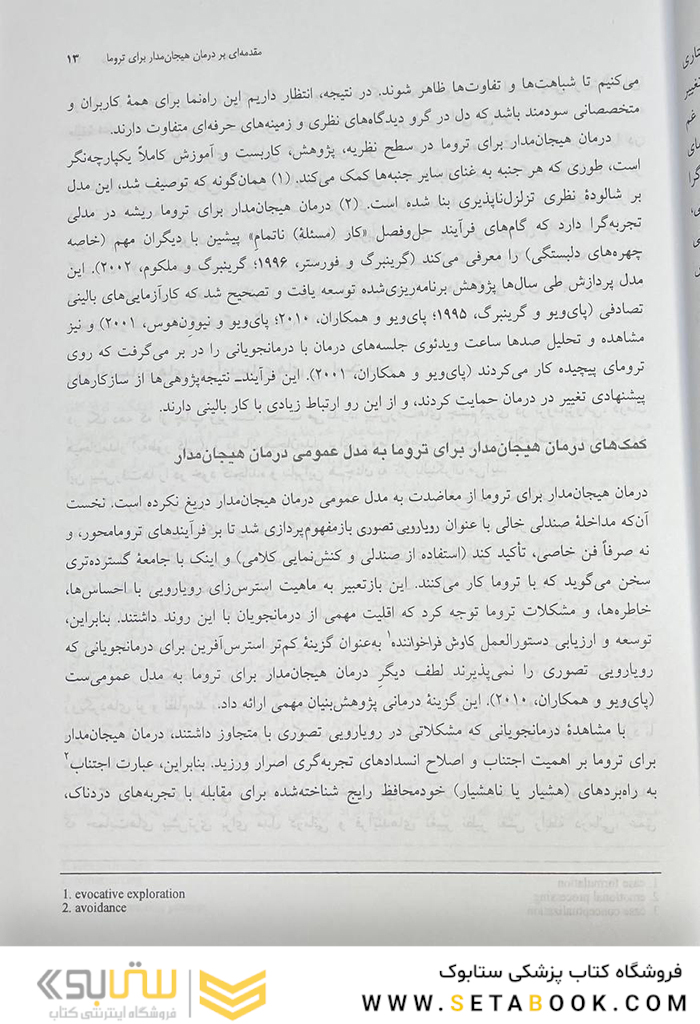 مقدمه‌ای بر درمان هیجان‌مدار برای تروما ۱۳
می‌کنیم تا شباهت‌ها و تفاوت‌ها ظاهر شوند. در نتیجه، انتظار داریم این راه‌نما برای همهٔ کاربران و
متخصصانی سودمند باشد که دل در گرو دیدگاه‌های نظری و زمینه‌های حرفه‌ای متفاوت دارند.
درمان هیجان‌مدار برای تروما در سطح نظریه، پژوهش، کاربست و آموزش کاملاً یکپارچه‌نگر
است، طوری که هر جنبه به غنای سایر جنبه‌ها کمک می‌کند. (۱) همان‌گونه که توصیف شد، این مدل
بر شالودهٔ نظری تزلزل‌ناپذیری بنا شده است. (۲) درمان هیجان‌مدار برای تروما ریشه در مدلی
تجربه‌گرا دارد که گام‌های فرآیند حل‌وفصل «کار (مسئلهٔ) ناتمامِ» پیشین با دیگران مهم (خاصه
چهره‌های دلبستگی) را معرفی می‌کند (گرینبرگ و فورستر، ۱۹۹۶؛ گرینبرگ و ملکوم، ۲۰۰۲). این
مدل پردازش طی سال‌ها پژوهش برنامه‌ریزی‌شده توسعه یافت و تصحیح شد که کارآزمایی‌های بالینی
تصادفی (پای‌ویو و گرینبرگ، ۱۹۹۵؛ پای‌ویو و همکاران، ۲۰۱۰؛ پای‌ویو و نیوون‌هوس، ۲۰۰۱) و نیز
مشاهده و تحلیل صدها ساعت ویدئوی جلسه‌های درمان با درمانجویانی را در بر می‌گرفت که روی
ترومای پیچیده کار می‌کردند (پای‌ویو و همکاران، ۲۰۰۱). این فرآیندـ نتیجه‌پژوهی‌ها از سازکارهای
پیشنهادی تغییر در درمان حمایت کردند، و از این رو ارتباط زیادی با کار بالینی دارند.
کمک‌های درمان هیجان‌مدار برای تروما به مدل عمومی درمان هیجان‌مدار
درمان هیجان‌مدار برای تروما از معاضدت به مدل عمومی درمان هیجان‌مدار دریغ نکرده است. نخست
آن‌که مداخلهٔ صندلی خالی با عنوان رویارویی تصوری بازمفهوم‌پردازی شد تا بر فرآیندهای ترومامحور، و
نه صرفاً فن خاصی، تأکید کند (استفاده از صندلی و کنش‌نمایی کلامی) و اینک با جامعهٔ گسترده‌تری
سخن می‌گوید که با تروما کار می‌کنند. این بازتعبیر به ماهیت استرس‌زای رویارویی با احساس‌ها،
خاطره‌ها، و مشکلات تروما توجه کرد که اقلیت مهمی از درمانجویان با این روند داشتند. بنابراین،
توسعه و ارزیابی دستورالعمل کاوش فراخواننده۱ به‌عنوان گزینهٔ کم‌تر استرس‌آفرین برای درمانجویانی که
رویارویی تصوری را نمی‌پذیرند لطف دیگرِ درمان هیجان‌مدار برای تروما به مدل عمومی‌ست
(پای‌ویو و همکاران، ۲۰۱۰). این گزینهٔ درمانی پژوهش‌بنیان مهمی ارائه داد.
با مشاهدهٔ درمانجویانی که مشکلاتی در رویارویی تصوری با متجاوز داشتند، درمان هیجان‌مدار
برای تروما بر اهمیت اجتناب و اصلاح انسدادهای تجربه‌گری اصرار ورزید. بنابراین، عبارت اجتناب۲
به راه‌بردهای (هشیار یا ناهشیار) خودمحافظ رایج شناخته‌شده برای مقابله با تجربه‌های دردناک،
1. evocative exploration
2. avoidance
فروشگاه کتاب پزشکی ستابوک
WWW.SETABOOK.COM
ستابوک
فروشگاه اینترنتی کتاب